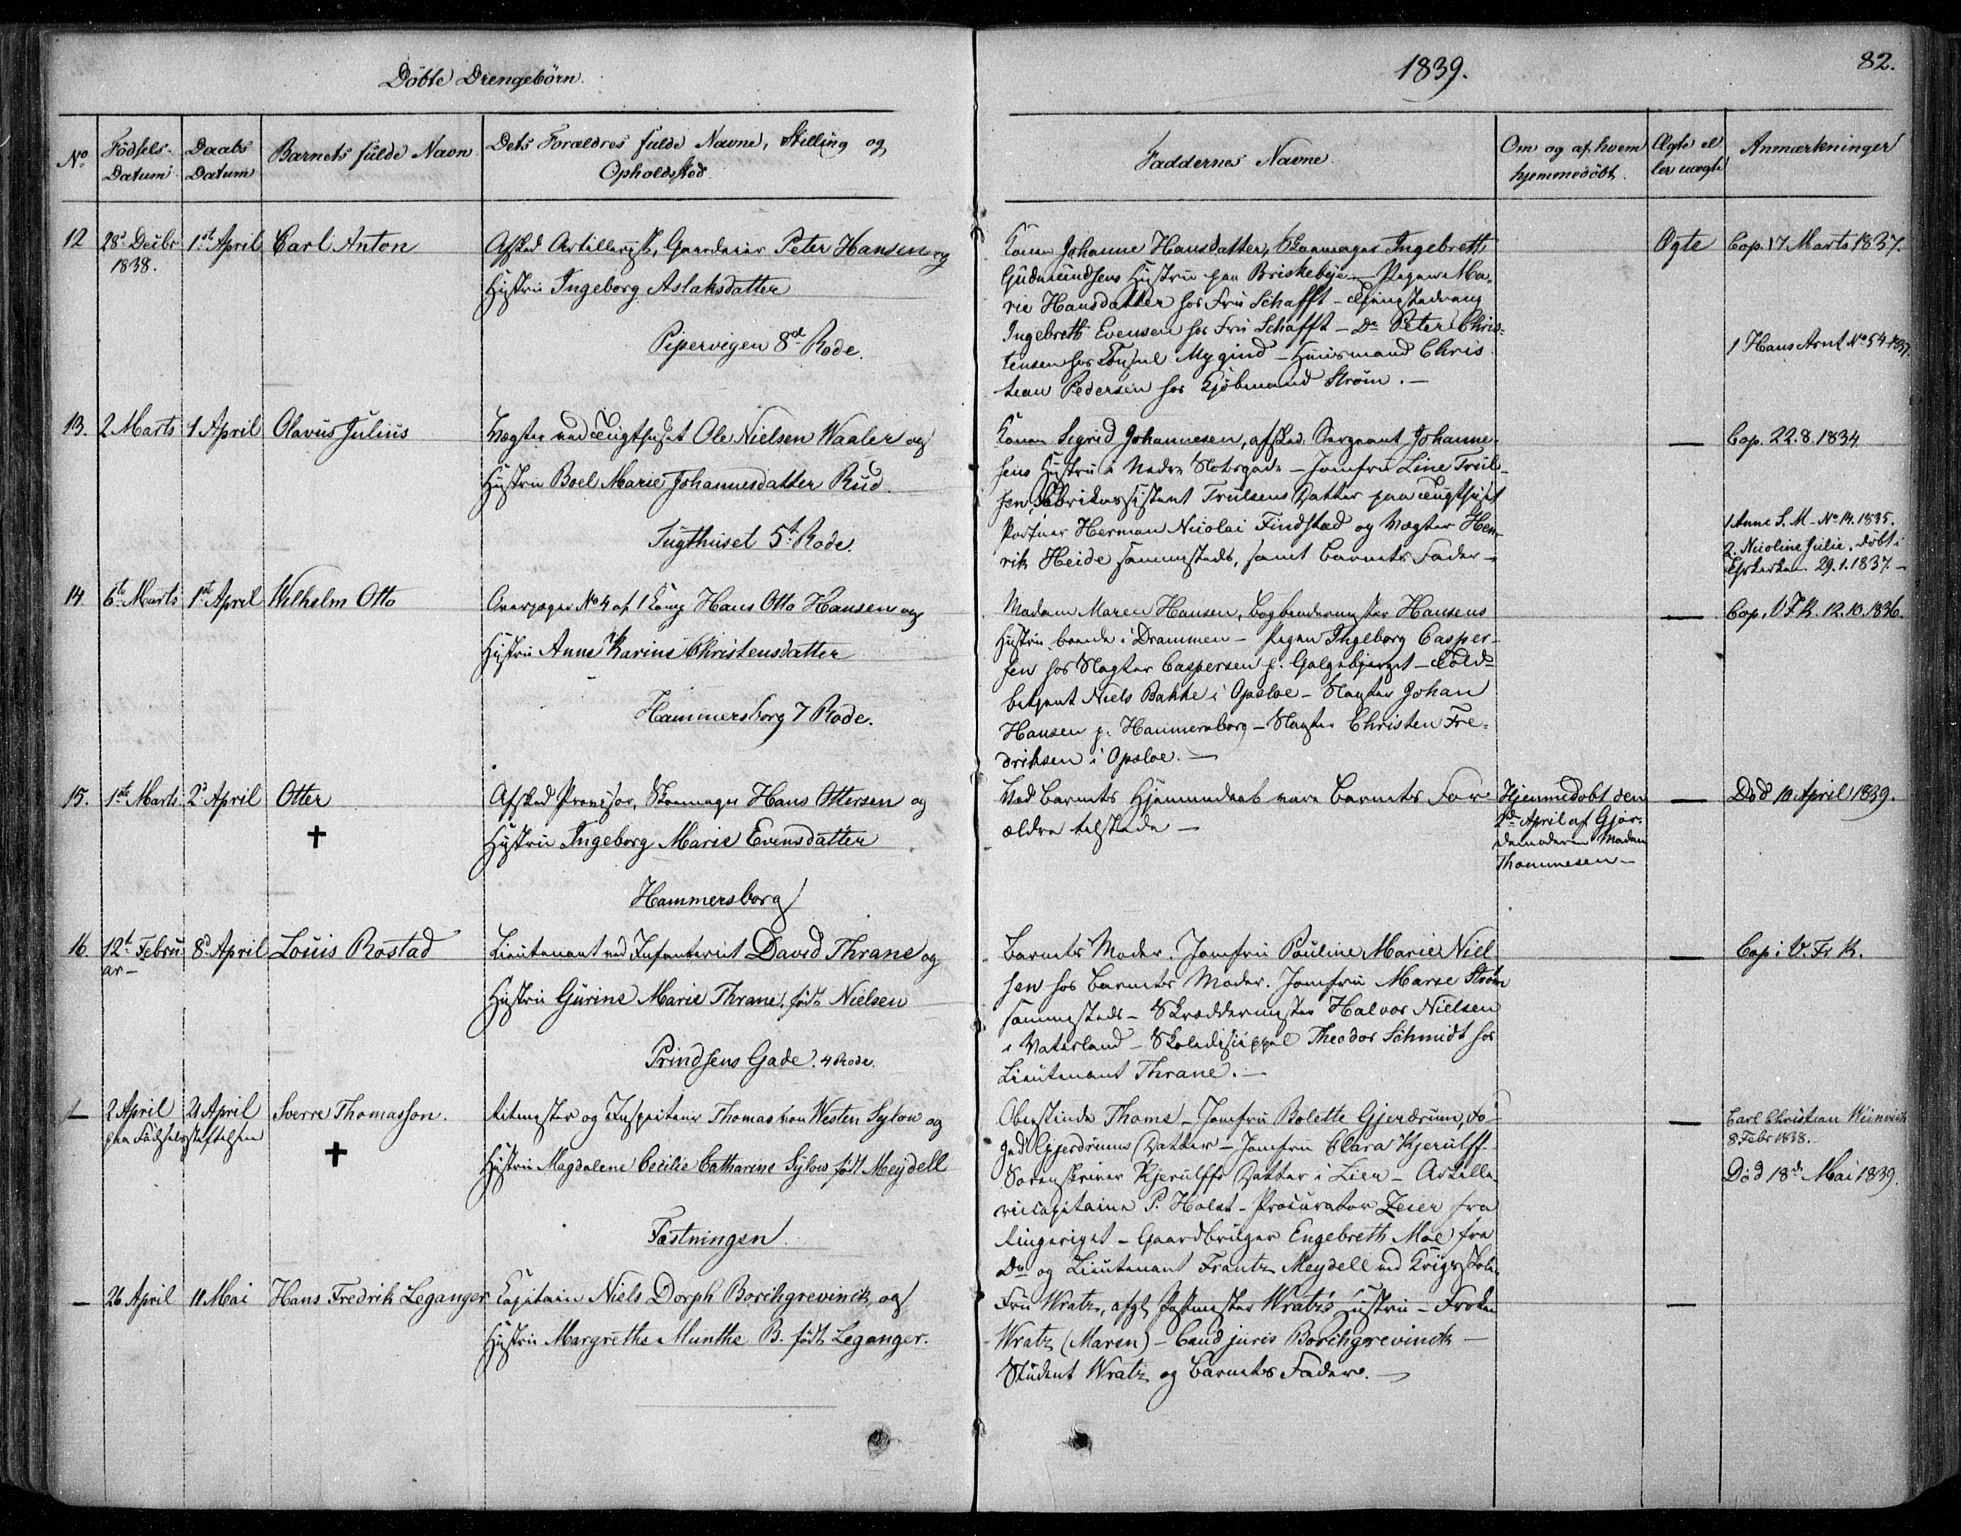 Döbte Drengebörn.
1839.
82.
No
Födsels-
Datum
Daabs
Datum
Barnets fulde Navn
Dets Forældres fulde Navne, Stilling og
Opholdssted
Faddernes Navne.
Om og af hvem
hjemmedöbt.
Ægte el
ler uægte
Anmærkninger
12
28de Decbr
1838.
1ste April
Carl Anton
Afsked Artillerist, Gaardeier Peter Hansen og
Hustru Ingeborg Aslaksdatter
Pipervigen 8de Rode.
Konen Johanne Hansdatter, Skomager Ingebreth
Gudmundsens Hustru paa Briskebye – Pigen Ma-
rie Hansdatter hos Fru Schafft – Tjenestedreng
Ingebreth Evensen hos Fru Schafft – Do Peter Chris-
tensen hos Consul Mygind – Huusmand Chris
tian Pedersen hos Kjöbmand Ström. –
Ægte
Cop. 17 Marts 1837.
1 Hans Arnt No 54 1837.
13.
2 Marts
1 April
Olavus Julius
Vægter ved Tugthuset Ole Nielsen Waaler og
Hustru Boel Marie Johannesdatter Rud.
Tugthuset 5t Rode.
Konen Sigrid Johannesen, afsked. Sergeant Johanne-
sens Hustru i Nedre Slotsgade – Jomfru Line Truls-
sen, Fabrikassistent Trulsens Datter paa Tugthuset
Portner Herman Nicolai Findstad og Vægter Hen-
rik Heide sammesteds, samt Barnets Fader –
—
Cop. 22.8.1834
1 Anne S. M – No 14. 1835.
2. Nicoline Julie. döbt i
29.1.1837. –
14
6te Marts
1ste April
Wilhelm Otto
Overjæger No 4 af 1 Comp Hans Otto Hansen og
Hustru Anne Karine Christensdatter
Hammersborg 7 Rode.
Madam Maren Hansen, Bogbindermester Hansens
Hustru boende i Drammen – Pigen Ingeborg Casper-
sen hos Slagter Caspersen p. Galgebjerget – Told-
betjent Niels Bakke i Opsloe – Slagter Johan
Hansen p. Hammersborg – Slagter Christen Fre-
driksen i Opsloe. –
—
Cop. V F K. 12.10.1836.
15.
1ste Marts
2d April
Otter
✝
Afsked Provisor, Skomager Hans Ottersen og
Hustru Ingeborg Marie Evensdatter
Hammersborg
Ved Barnets Hjemmedaab vare Barnets For
ældre tilstede –
Hjemmedöbt den
2de April af Gjor-
demoderen Madam
Thommesen –
—
Död 10 April 1839.
16.
12te Febru
ar –
8d April
Louis Rostad
Lieutenant ved Infanteriet David Thrane og
Hustru Gurine Marie Thrane, födt Nielsen
Prindsens Gade. 4 Rode.
Barnets Moder. Jomfru Pauline Marie Niel
sen hos Barnets Moder. Jomfru Marie Ström
sammesteds – Skræddermester Halvor Nielsen
i Vaterland – Skoledisippel Theodor Schmidt hos
Lieutenant Thrane. –
—
Cop i V. Fr K.
—
2 April
21 April
paa Födselsstiftelsen
Sverre Thomasson.
✝
Ritmester og Inspecteur Thomas von Westen Sylow og
Hustru Magdalene Cecilie Catharine Sylow født Meydell
Fæstningen.
Oberstinde Thams – Jomfru Bolette Gjerdrum, Fo-
ged Gjerdrums Datter – Jomfru Clara Kjerulff
Sorenskriver Kjerulffs Datter i Lier – Artille-
ricapitaine P. Holst – Procurator Zeier fra
Ringeriget – Gaardbruger Engebreth Moe fra
Do og Lieutenant Frantz Meydell ved Krigsskolen
—
Carl Christian Weinrich
8 Febr 1838. –
Död 18de Mai 1839.
—
26 April
11 Mai
Hans Fredrik Leganger
Capitain Niels Dorph Borchgrevinck og
Hustru Margrethe Munthe B. födt Leganger.
Fru Wratz, afgl. Postmester Wratz's Hustru – Fröken
Wratz (Maren) – Cand juris Borchgrevinck –
Student Wratz og Barnets Fader. –
—